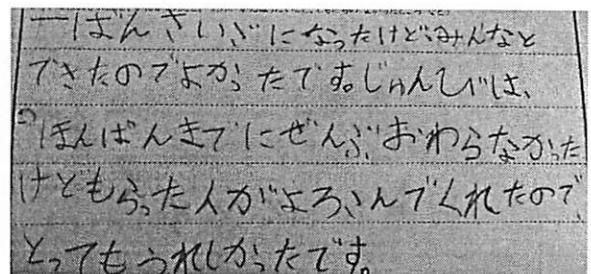 一ばんさいごになったけど、みんなと
できたのでよかったです。じゅんびは、
ほんばんまでにぜんぶおわらなかった
けどもらった人がよろこんでくれたので、
とってもうれしかったです。